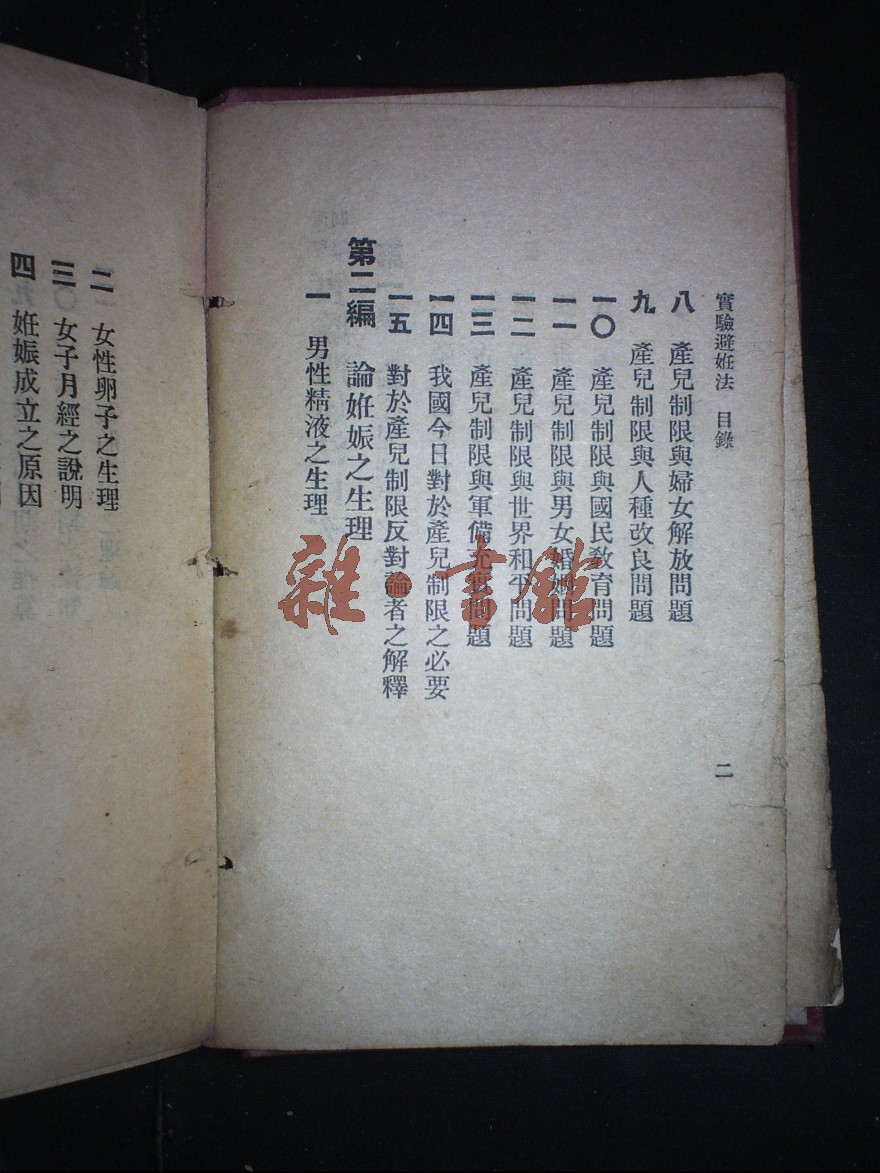 實驗避姙法　目錄
二
八　產兒制限與婦女解放問題
九　產兒制限與人種改良問題
一〇　產兒制限與國民教育問題
一一　產兒制限與男女婚姻問題
一二　產兒制限與世界和平問題
一三　產兒制限與軍備充實問題
一四　我國今日對於產兒制限之必要
一五　對於產兒制限反對論者之解釋
第二編　論姙娠之生理
一　男性精液之生理
二　女性卵子之生理
三　女子月經之說明
四　姙娠成立之原因
雜·書館